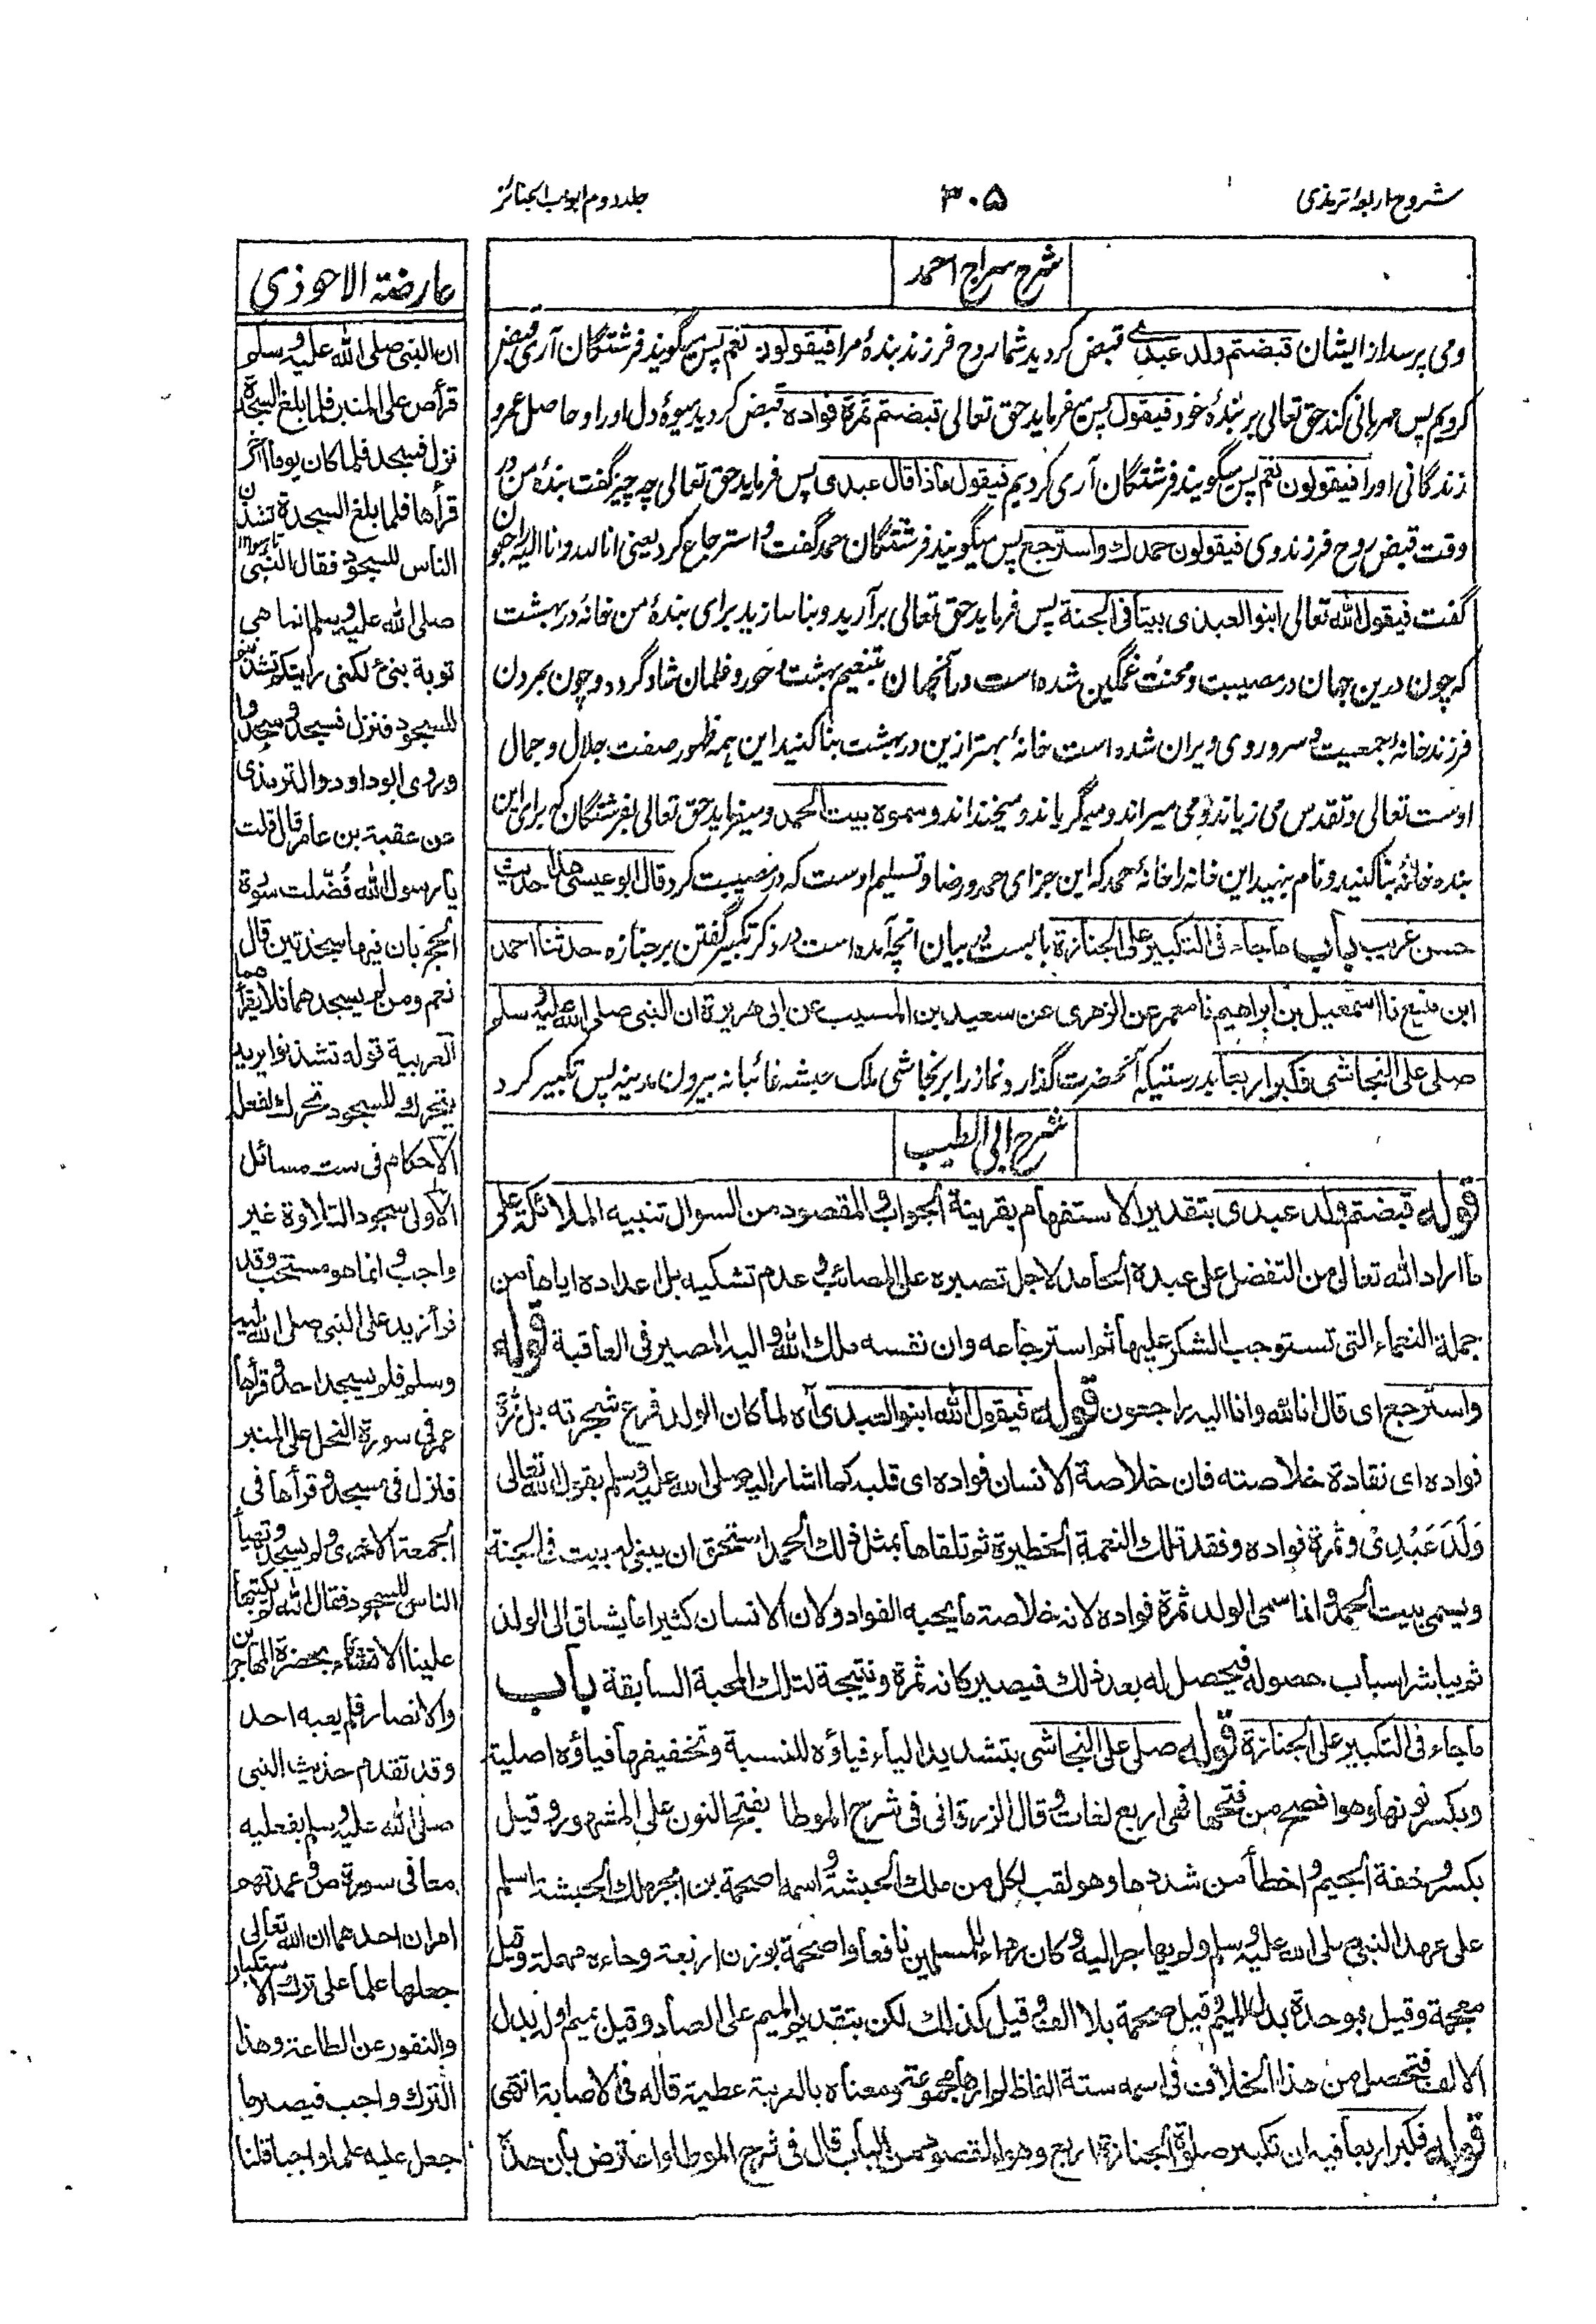 شروح اربعهٔ ترمذی
۳۰۵
جلد دوم ابواب الجنائز
شرح سراج احمد
ومی پرسد از ایشان قبضتم ولد عبدی قبض کردید شما روح فرزند بندهٔ مرا فیقولون نعم پس میگویند فرشتگان آری قبض
کردیم پس مهربانی کند حق تعالی بر بندهٔ خود فیقول پس میفرماید حق تعالی قبضتم ثمرة فواده قبض کردید میوهٔ دل اورا و حاصل عمر و
زندگانی اورا فیقولون نعم پس میگویند فرشتگان آری کردیم فیقول ماذا قال عبدی پس فرماید حق تعالی چه چیز گفت بندهٔ من در
وقت قبض روح فرزند وی فیقولون حمدك واسترجع پس میگویند فرشتگان حمد گفت و استرجاع کرد یعنی انا لله وانا الیه راجعون
گفت فیقول الله تعالی ابنوا لعبدی بیتا فی الجنة پس فرماید حق تعالی برآرید و بنا سازید برای بندهٔ من خانه در بهشت
که چون درین جهان در مصیبت و محنت غمگین شده است در آنجهان بتنعیم بهشت و حور و غلمان شاد گردد و چون بمردن
فرزند خانهٔ جمعیت و سرور وی ویران شده است خانهٔ بهتر ازین در بهشت بنا کنید این همه ظهور صفت جلال و جمال
اوست تعالی و تقدس می زیاند و می میراند و میگریاند و میخنداند وسموه بیت الحمد و میفرماید حق تعالی بفرشتگان که برای این
بنده خانهٔ بنا کنید و نام بنهید این خانه را خانهٔ حمد که این جزای حمد و رضا و تسلیم اوست که در مصیبت کرد قال ابو عیسی هذا حدیث
حسن غریب باب ما جاء فی التکبیر علی الجنازة بابیست در بیان انچه آمده است در ذکر تکبیر گفتن بر جنازه حدثنا احمد
ابن منیع نا اسمعیل بن ابراهیم نا معمر عن الزهری عن سعید بن المسیب عن ابی هریرة ان النبی صلی الله علیه وسلم
صلی علی النجاشی فکبر اربعا بدرستیکه آنحضرت گذارد نماز را بر نجاشی ملک حبشه غائبانه بیرون مدینه پس تکبیر کرد
شرح ابی الطیب
قوله قبضتم ولد عبدی بتقدیر الاستفهام بقرینة الجواب والمقصود من السوال تنبیه الملائکة علی
ما اراد الله تعالی من التفضل علی عبده الحامد لاجل تصبره علی المصائب وعدم تشکیه بل اعداده ایاها من
جملة النعماء التی تستوجب الشکر علیها ثم استرجاعه وان نفسه ملك الله والیه المصیر فی العاقبة قوله
واسترجع ای قال انا لله وانا الیه راجعون قوله فیقول الله ابنوا لعبدی آه لما کان الولد فرع شجرته بل ثمرة
فواده ای نقادة خلاصته فان خلاصة الانسان فواده ای قلبه کما اشار الیه صلی الله علیه وسلم بقول الله تعالی
وَلَدَ عَبْدِیْ وثمرة فواده وفقد تلك النعمة الخطیرة ثم تلقاها بمثل ذلك الحمد استحق ان یبنی له بیت فی الجنة
ویسمی ببیت الحمد وانما سمی الولد ثمرة فواده لانه خلاصة ما یحبه الفواد ولان الانسان کثیرا ما یشتاق الی الولد
ثم یباشر اسباب حصوله فیحصل له بعد ذلك فیصیر کانه ثمرة ونتیجة لتلك المحبة السابقة باب
ما جاء فی التکبیر علی الجنازة قوله صلی علی النجاشی بتشدید الیاء فیاؤه للنسبة وتخفیفها فیاؤه اصلیة
وبکسر نونها وهو افصح من فتحها فهی اربع لغات وقال الزرقانی فی شرح الموطا بفتح النون علی المشهور وقیل
بکسر وخفة الجیم واخطأ من شددها وهو لقب لکل من ملك الحبشة واسمه اصحمة بن ابجر ملك الحبشة اسلم
علی عهد النبی صلی الله علیه وسلم ولم یهاجر الیه وکان ردءا للمسلمین نافعا واصحمة بوزن اربعة وحاءه مهملة وقیل
معجمة وقیل بموحدة بدل المیم وقیل صحمة بلا الف وقیل کذلك لکن بتقدیم المیم علی الصاد وقیل بمیم اوله بدل
الالف فتحصل من هذا الخلاف فی اسمه ستة الفاظ لم ارها مجموعة ومعناه بالعربیة عطیة قاله فی الاصابة انتهی
قوله فکبر اربعا فیه ان تکبیر صلوة الجنازة اربع وهو المقصود من الباب قال فی شرح الموطا واعترض بان هذا
عارضة الاحوذی
ان النبی صلی الله علیه وسلم
قرأ ص علی المنبر فلما بلغ السجدة
نزل فسجد فلما کان یوما آخر
قرأها فلما بلغ السجدة تشذن
الناس للسجود فقال النبی
صلی الله علیه وسلم انما هی
توبة نبی ولکنی رایتکم تشذنتم
للسجود فنزل فسجد وسجدوا
وروی ابو داود والترمذی
عن عقبة بن عامر قال قلت
یا رسول الله فُضّلت سورة
الحج بان فیها سجدتین قال
نعم ومن لم یسجدهما فلا یقرأهما
العربیة قوله تشذنوا یرید
یتحرك للسجود تحرك لفعله
الاحکام فی ست مسائل
الاولی سجود التلاوة غیر
واجب وانما هو مستحب وقد
قرأ زید علی النبی صلی الله علیه
وسلم فلم یسجد احد وقرأها
عمر فی سورة النحل علی المنبر
فنزل فسجد وقرأها فی
الجمعة الاخری ولم یسجد وتهیأ
الناس للسجود فقال ان الله لم یکتبها
علینا الا ان نشاء بحضرة المهاجرین
والانصار فلم یعبه احد
وقد تقدم حدیث النبی
صلی الله علیه وسلم بفعلیه
معا فی سورة ص وعمدتهم
امران احدهما ان الله تعالی
جعلها علما علی ترك الاستکبار
والنفور عن الطاعة وهذا
الترك واجب فیصیر ما
جعل علیه علما واجبا قلنا